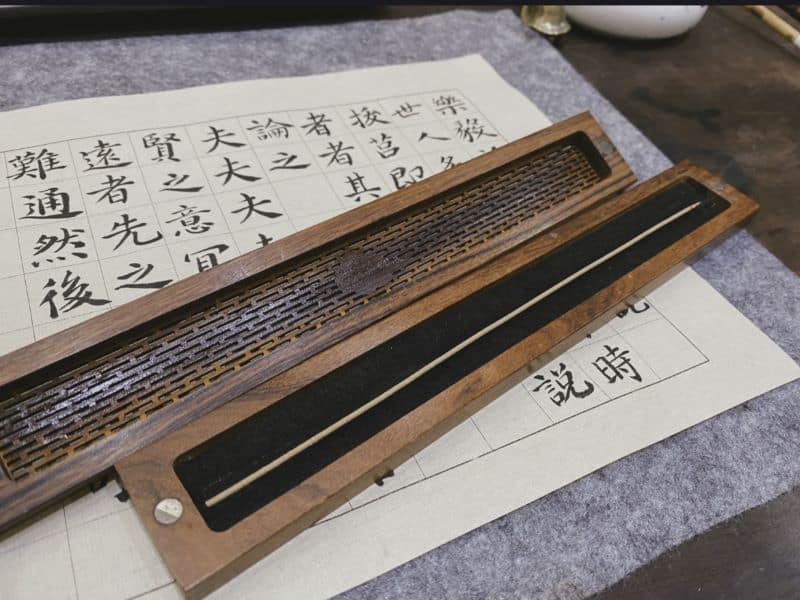 樂毅
世人
拔莒即
者者其
論之
夫夫夫
賢之意宜
遠者先之
難通然後
時
說